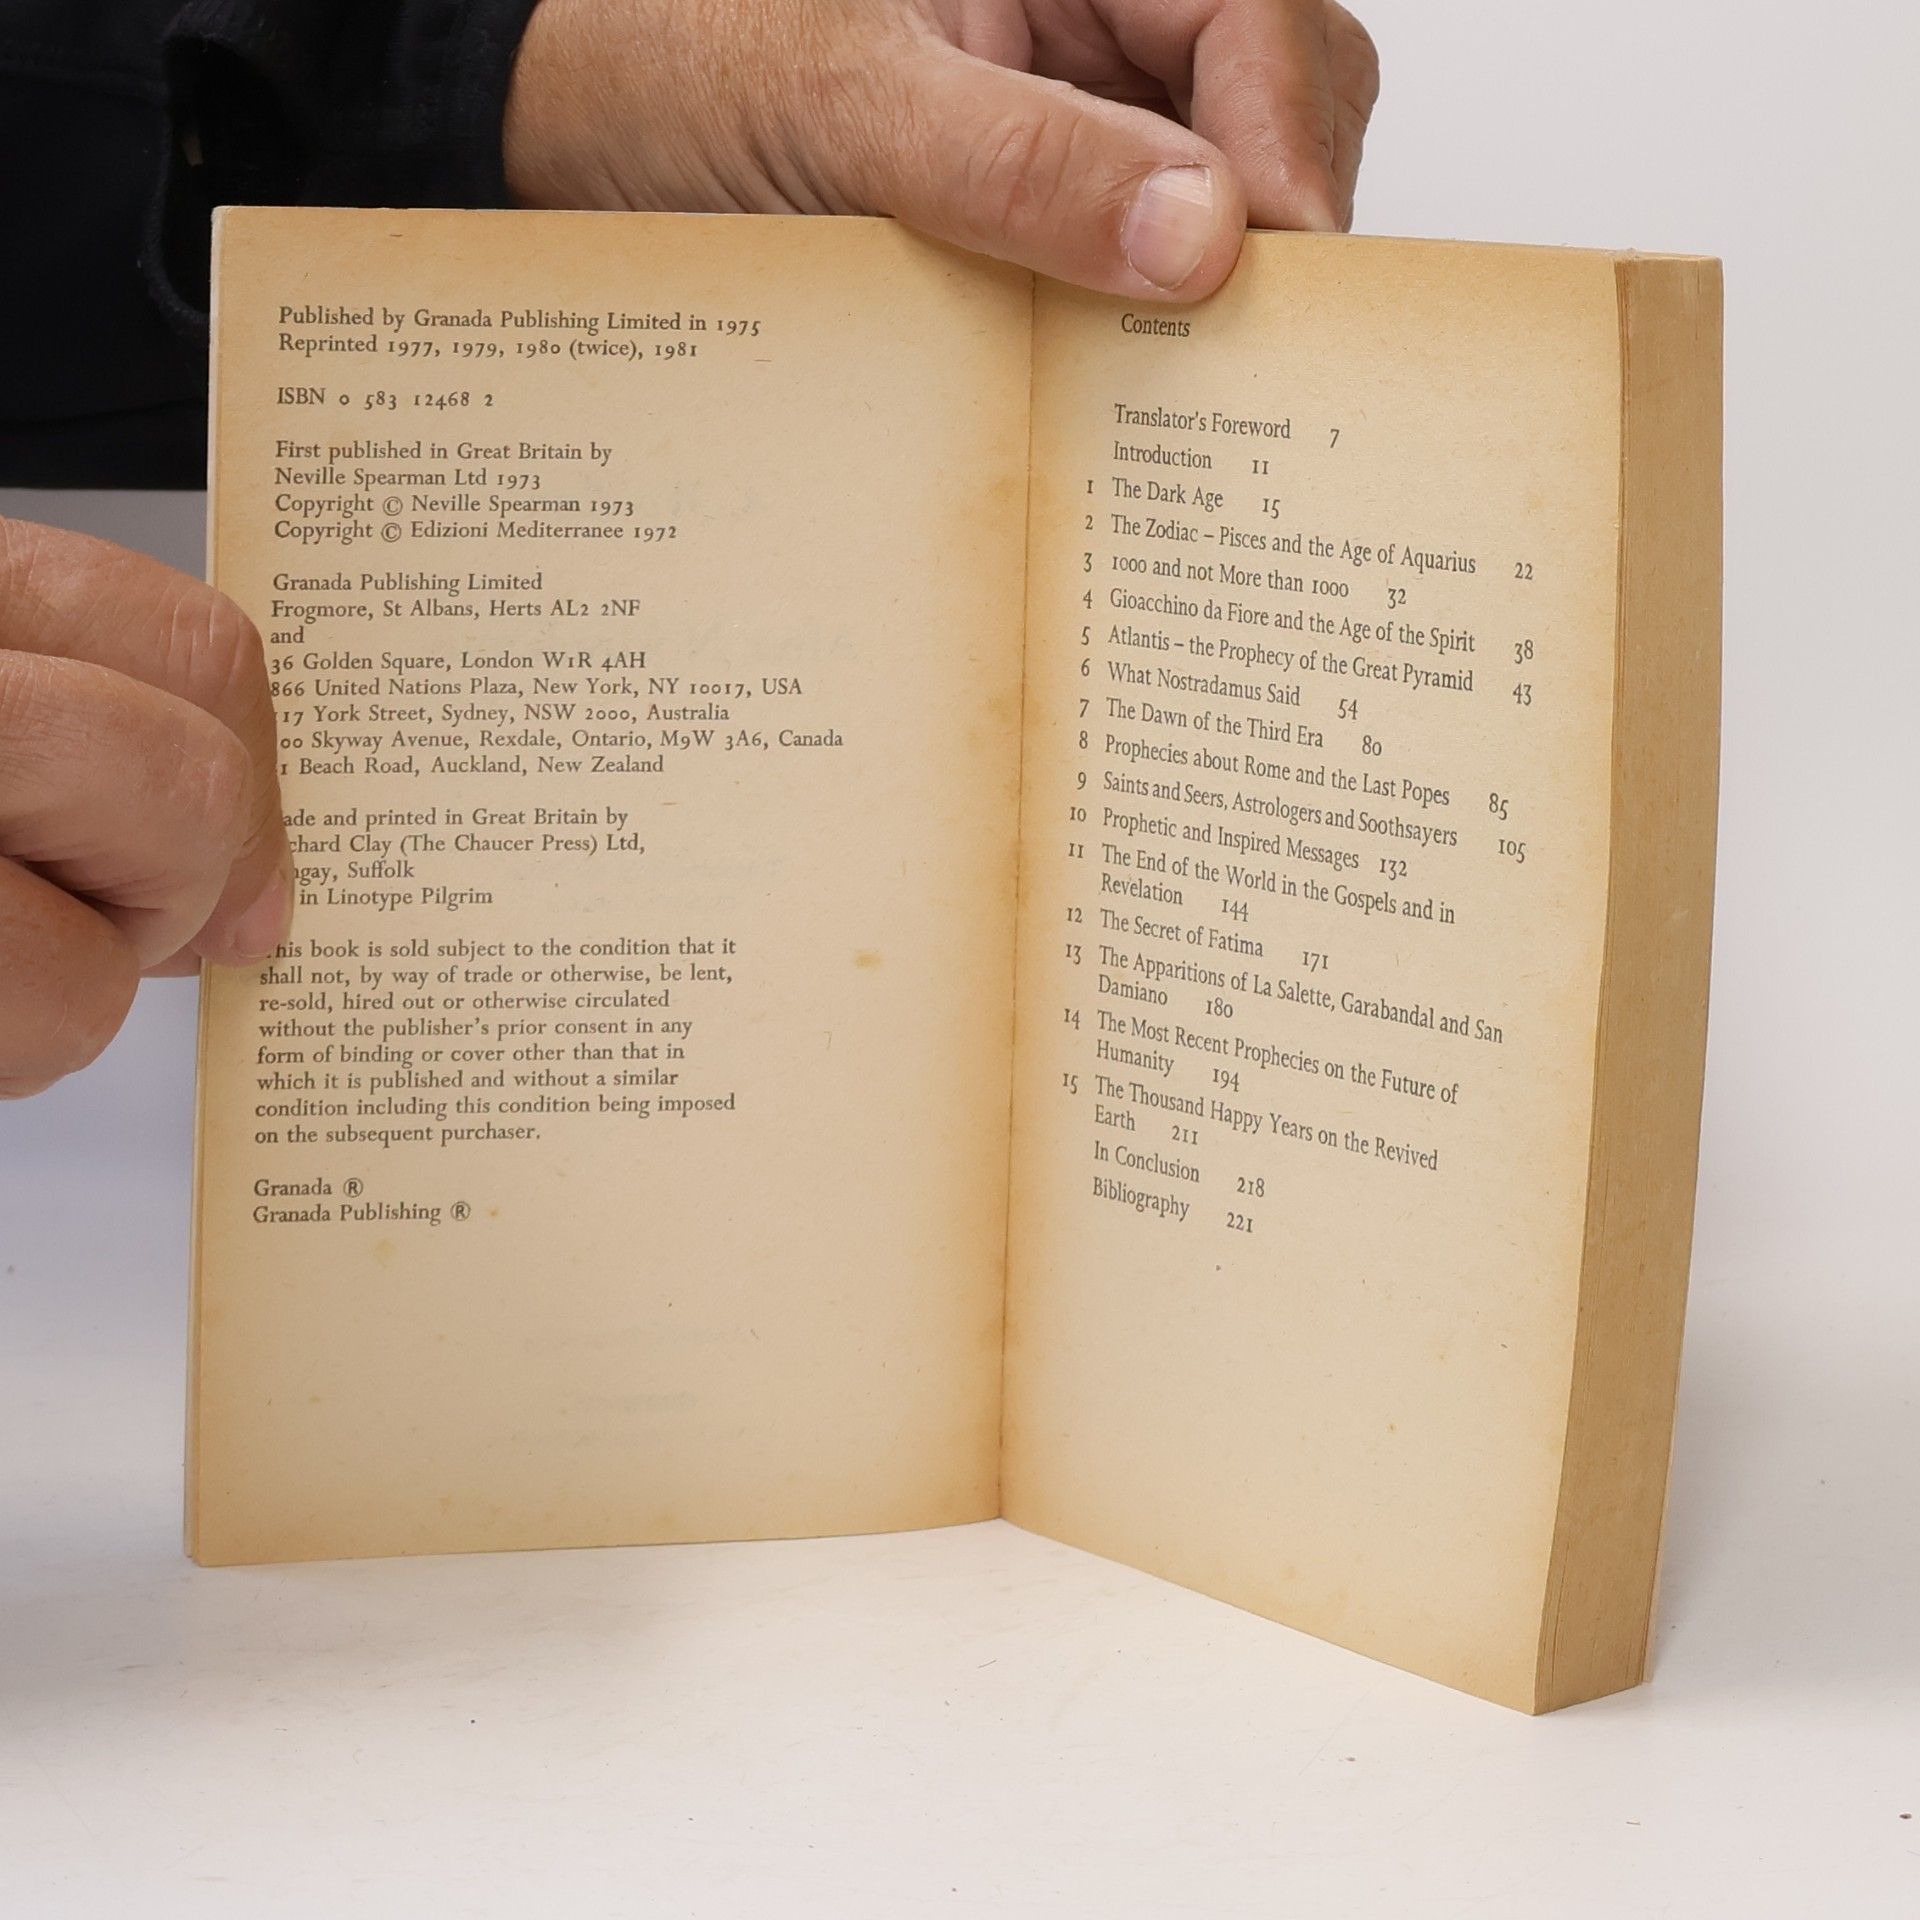 Published by Granada Publishing Limited in 1975
Reprinted 1977, 1979, 1980 (twice), 1981
ISBN 0 583 12468 2
First published in Great Britain by
Neville Spearman Ltd 1973
Copyright © Neville Spearman 1973
Copyright © Edizioni Mediterranee 1972
Granada Publishing Limited
Frogmore, St Albans, Herts AL2 2NF
and
36 Golden Square, London W1R 4AH
866 United Nations Plaza, New York, NY 10017, USA
17 York Street, Sydney, NSW 2000, Australia
00 Skyway Avenue, Rexdale, Ontario, M9W 3A6, Canada
1 Beach Road, Auckland, New Zealand
ade and printed in Great Britain by
chard Clay (The Chaucer Press) Ltd,
ngay, Suffolk
in Linotype Pilgrim
This book is sold subject to the condition that it
shall not, by way of trade or otherwise, be lent,
re-sold, hired out or otherwise circulated
without the publisher's prior consent in any
form of binding or cover other than that in
which it is published and without a similar
condition including this condition being imposed
on the subsequent purchaser.
Granada ®
Granada Publishing ®
Contents
Translator's Foreword 7
Introduction 11
1 The Dark Age 15
2 The Zodiac – Pisces and the Age of Aquarius 22
3 1000 and not More than 1000 32
4 Gioacchino da Fiore and the Age of the Spirit 38
5 Atlantis – the Prophecy of the Great Pyramid 43
6 What Nostradamus Said 54
7 The Dawn of the Third Era 80
8 Prophecies about Rome and the Last Popes 85
9 Saints and Seers, Astrologers and Soothsayers 105
10 Prophetic and Inspired Messages 132
11 The End of the World in the Gospels and in
Revelation 144
12 The Secret of Fatima 171
13 The Apparitions of La Salette, Garabandal and San
Damiano 180
14 The Most Recent Prophecies on the Future of
Humanity 194
15 The Thousand Happy Years on the Revived
Earth 211
In Conclusion 218
Bibliography 221